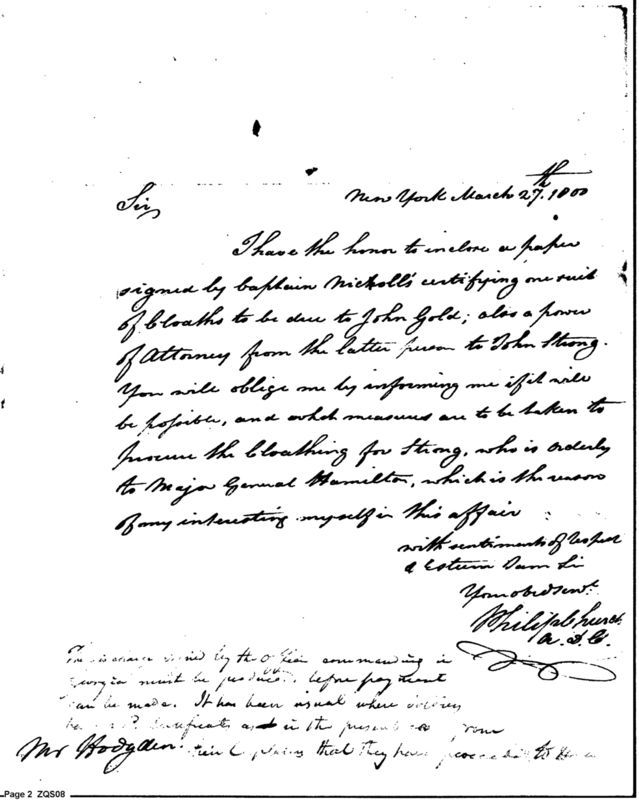 New York March 27th. 1800
Sir,
I have the honor to inclose a paper
signed by Captain Nicholl's certifying one suit
of Cloaths to be due to John Gold; also a power
of Attorney from the latter person to John Strong.
You will oblige me by informing me if it will
be possible, and what measures are to be taken to
procure the Cloathing for Strong, who is orderly
to Major General Hamilton, which is the reason
of my interesting myself in this affair
with sentiments of respect
& Esteem I am Sir
Your obed servt.
Philip Church
A.D.C.
by the commanding in
Georgia must be produced, before payment
can be made. It has been usual where
certificate as in the present from
that they have to
Mr Hodgden
Page 2 ZQS08